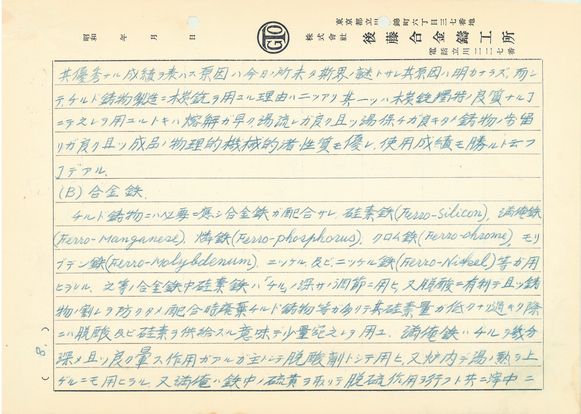 東京都立川錦町六丁目三七番地
株式會社 後藤合金鑄工所
電話立川二二二七番
GTO
昭和 年 月 日
其優秀ナル成績ヲ表ハス原因ハ今日ノ所未ダ斯界ノ謎トサレ其原因ハ明カナラズ、而シ
テチルド鋳物製造ニ木炭銑ヲ用ユル理由ハニツアリ其一ツハ木炭銑獨特ノ良質ナルコト
ニテ之レヲ用ユルトキハ熔解が早ク湯流レガ良ク且ツ湯保チガ良キタメ鋳物ノ歩留
リガ良ク且ツ成品ノ物理的機械的諸性質モ優レ、使用成績モ勝ル
デアル.
(B) 合金鉄.
チルド鋳物ニハ必要ニ應ジ合金鉄ガ配合サレ、硅素鉄(Ferro-Silicon), 満俺鉄
(Ferro-Manganese), 燐鉄(Ferro-phosphorus), クロム鉄(Ferro-chrome), モリ
ブデン鉄(Ferro-Molybdenum), ニッケル及ビニッケル鉄(Ferro-Nickel)等ガ用
ヒラレル. 之等ノ合金鉄中硅素鉄ハ「チル」ノ深サノ調節ニ用ヒ、又脱酸ニ有利デ且ツ鋳
物ノ割レヲ防グタメ配合時廢棄チルド鋳物等ガ多クテ其硅素量ガ低クナリ過ギタ際
ニハ脱酸及ビ硅素ヲ供給スル意味デ少量宛之レヲ用ユ. 満俺鉄ハチルヲ幾分
深メ且ツ良ク暈ス作用ガアルガ主トシテ脱酸劑トシテ用ヒ、又炉内デ湯ノ熱ヲ上
ゲルニモ用ヒラル. 又満俺ハ鉄中ノ硫黄ヲ取リテ脱硫作用ヲ行フト共ニ滓中ニ
(8.)